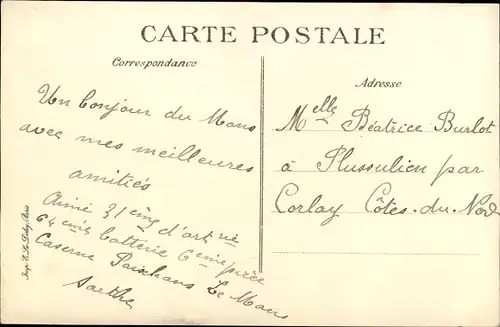 CARTE POSTALE
Correspondance
Adresse
Un bonjour du Mans
avec mes meilleures
amitiés
Aimé 31ème d'artrie
64ème batterie 6ème pièce
Caserne Paixhans Le Mans
Sarthe
Melle Béatrice Burlot
à Plussulien par
Corlay Côtes-du-Nord